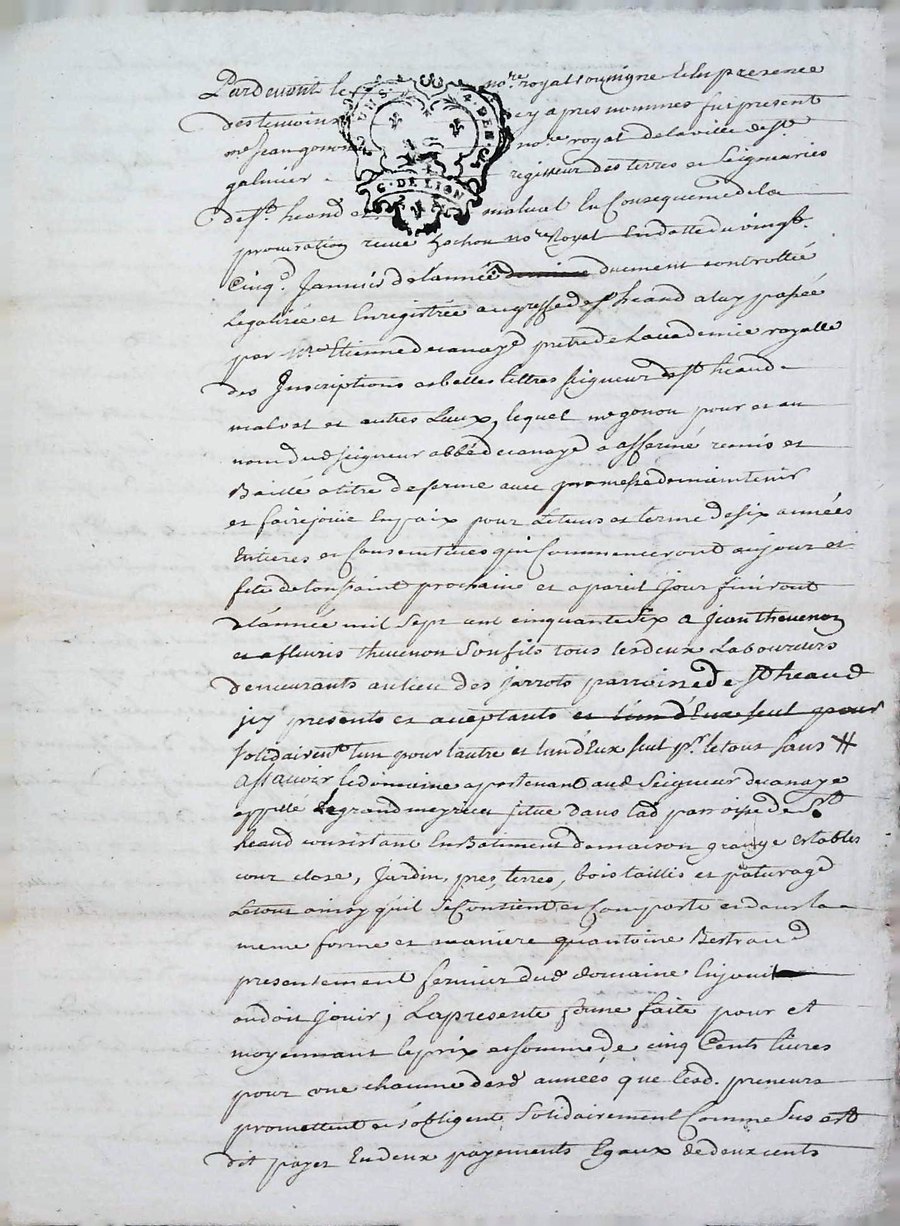 Pardevant le no.re royal soussigne et en presence
des temoins cy apres nommes fut present
me Jean gonon no.re royal de la ville de st
galmier regisseur des terres et Seigneuries
de st heand et malval En Consequence de la
procuration recue no.re Royal En datte du vingt
Cinq.e Janvier de l'année duement controllée
Legalisée et Enregistrée au greffe de st heand a luy passée
par Mre Etienne de canaye pretre de L'academie royalle
des Inscriptions et belles lettres seigneur de st heand
malval et autres Lieux, lequel me gonon pour et au
nom dud seigneur abbé de canaye a affermé remis et
Baillé a titre de ferme avec promesse de maintenir
et faire jouir En paix pour le tems et terme de six années
Entieres et Consecutives qui Commenceront au jour et
fete de toussaint prochaine et a pareil jour finiront
de l'année mil Sept cent cinquante six a jean thevenon
et a fleuris thevenon Son fils tous les deux Laboureurs
Demeurants au lieu des jarrots parroisse de St heand
jcy presents et acceptants et l'un d'Eux seul pour
Solidairem.t l'un pour l'autre et l'un d'Eux seul p.r le tout sans #
Assavoir le domaine appartenant aud Seigneur de canaye
appellé Le grand meyrieu situé dans lad parroisse de St
heand consistant En Batiment de maison grange Estables
cour close, Jardin, pres, terres, bois taillis et paturage
Le tout ainsy qu'il Se Contient et Comporte et dans la
meme forme et maniere qu'antoine Bertrand
presentement fermier dud domaine En jouit
ou doit Jouir; La presente ferme faite pour et
moyennant le prix et somme de cinq Cents livres
pour une chacune desd années que lesd. preneurs
promettent et s'obligent Solidairement Comme Sus est
dit payer En deux payements Egaux de deux cents
4. DEN.
G. DE LION